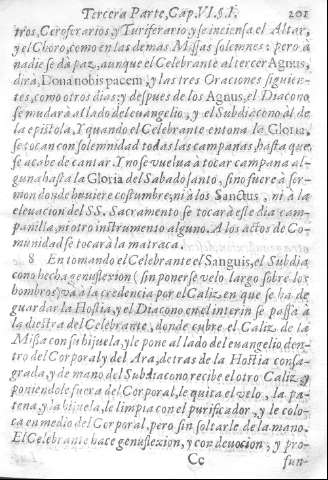 Tercera Parte, Cap. VI. §. I. 201
tros, Ceroferarios y Turiferario; y se inciensa el Altar,
y el Choro, como en las demas Missas solemnes: pero à
nadie se dà paz, aunque el Celebrante al tercer Agnus,
dirà, Dona nobis pacem, y las tres Oraciones siguien-
tes, como otros dias: y despues de los Agnus, el Diacono
se mudarà al lado del euangelio, y el Subdiacono àl de
la epistola, Y quando el Celebrante entona la Gloria,
se tocan con solemnidad todas las campanas, hasta que
se acabe de cantar. Y no se vuelua à tocar campana al-
guna hasta la Gloria del Sabado santo, sino fuere à ser-
mon donde huuiere costumbre; ni à los Sanctus, ni à la
eleuacion del SS. Sacramento se tocarà este dia cam-
panilla, ni otro instrumento alguno. A los actos de Co-
munidad se tocarà la matraca.
8 En tomando el Celebrante el Sanguis, el Subdia
cono hecha genuflexion (sin ponerse velo largo sobre los
hombros) và à la credencia por el Caliz en que se ha de
guardar la Hostia, y el Diacono en el interin se passa à
la diestra del Celebrante, donde cubre el Caliz de la
Missa con su hijuela, y le pone al lado del euangelio den-
tro del Corporal y del Ara, detras de la Hostia consa-
grada, y de mano del Subdiacono recibe el otro Caliz, y
poniendole fuera del Corporal, le quita el velo, la pa-
tena, y la hijuela, le limpia con el purificador, y le colo-
ca en medio del Corporal, pero sin soltarle de la mano.
El Celebrante hace genuflexion, y con deuocion, y pro-
Cc fun-